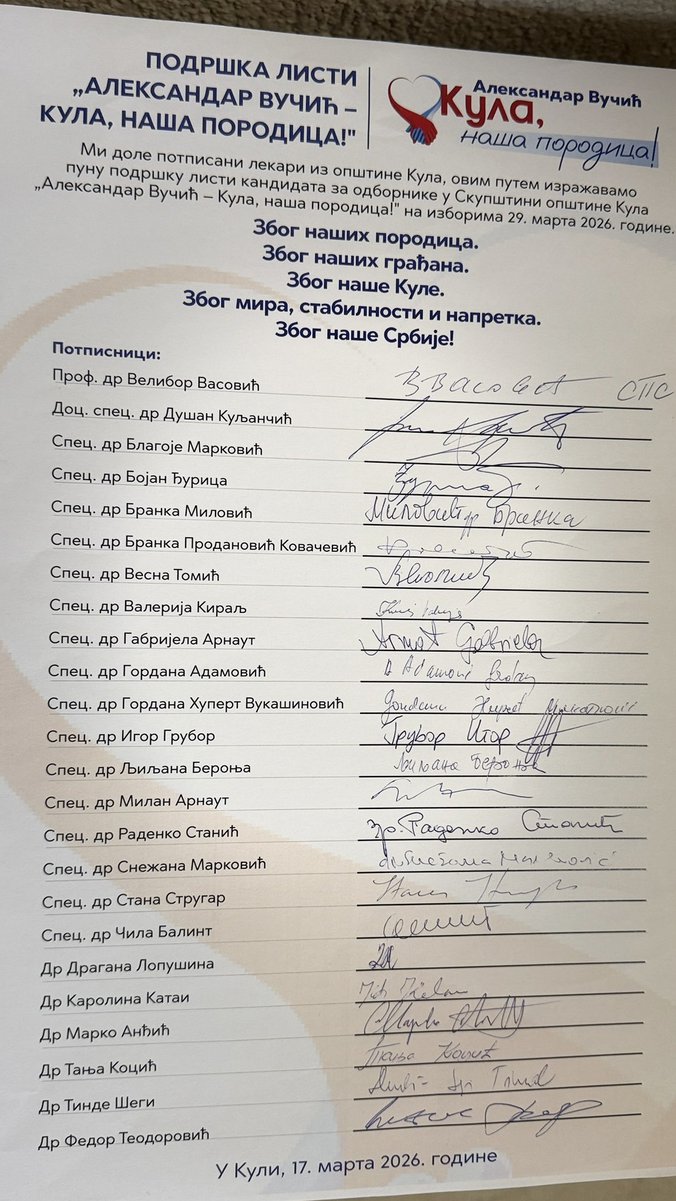 ПОДРШКА ЛИСТИ
„АЛЕКСАНДАР ВУЧИЋ –
КУЛА, НАША ПОРОДИЦА!"
Александар Вучић
Кула,
наша породица!
Ми доле потписани лекари из општине Кула, овим путем изражавамо
пуну подршку листи кандидата за одборнике у Скупштини општине Кула
„Александар Вучић – Кула, наша породица!" на изборима 29. марта 2026. године.
Због наших породица.
Због наших грађана.
Због наше Куле.
Због мира, стабилности и напретка.
Због наше Србије!
Потписници:
Проф. др Велибор Васовић СПС
Доц. спец. др Душан Куљанчић
Спец. др Благоје Марковић
Спец. др Бојан Ђурица
Спец. др Бранка Миловић др Бранка
Спец. др Бранка Продановић Ковачевић
Спец. др Весна Томић
Спец. др Валерија Кираљ
Спец. др Габријела Арнаут Arnaut Gabriela
Спец. др Гордана Адамовић Adamović
Спец. др Гордана Хуперт Вукашиновић Gordana
Спец. др Игор Грубор Грубор Игор
Спец. др Љиљана Бероња Љиљана Бероња
Спец. др Милан Арнаут
Спец. др Раденко Станић др. Раденко Станић
Спец. др Снежана Марковић
Спец. др Стана Стругар
Спец. др Чила Балинт
Др Драгана Лопушина
Др Каролина Катаи
Др Марко Анђић Марко
Др Тања Коцић Тања Коцић
Др Тинде Шеги
Др Федор Теодоровић
У Кули, 17. марта 2026. године